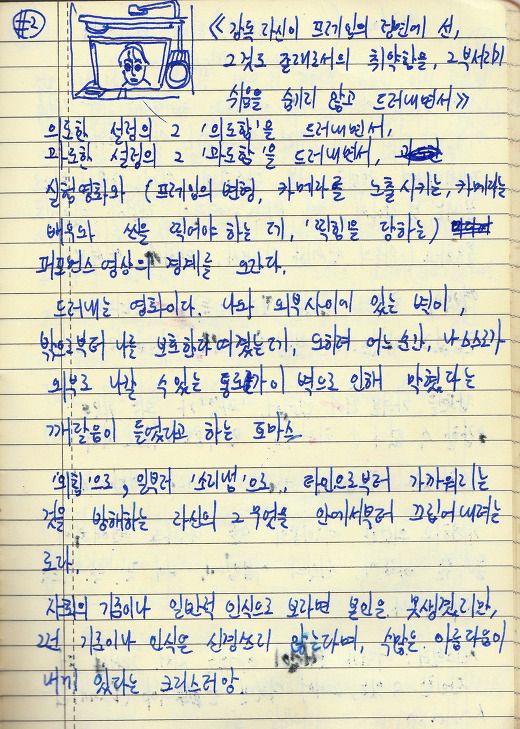 #2
《감독 자신이 프레임의 전면에 선,
그것도 존재로서의 취약함을, 그 부서지기
쉬움을 숨기지 않고 드러내면서》
의도한 설정의 그 '의도함'을 드러내면서,
과도한 설정의 그 '과도함'을 드러내면서,
실험영화와 (프레임의 변형, 카메라를 노출시키는, 카메라는
배우와 씬을 찍어야 하는데, '찍힘을 당하는)
퍼포먼스 영상의 경계를 오간다.
드러내는 영화이다. 나와 외부사이에 있는 벽이,
밖으로부터 나를 보호한다 여겼는데, 오히려 어느 순간, 나 스스로가
외부로 나갈 수 있는 통로가 이 벽으로 인해 막혔다는
깨달음이 들었다고 하는 토마스
'외침'으로, 일부러 '소리냄'으로,, 타인으로부터 가까워지는
것을 방해하는 자신의 그 무엇을 안에서부터 끄집어내려는
로자.
사회의 기준이나 일반적 인식으로 보자면 본인은 못생겼지만,
그런 기준이나 인식은 신경쓰지 않는다며, 수많은 아름다움이
내게 있다는 크리스티앙